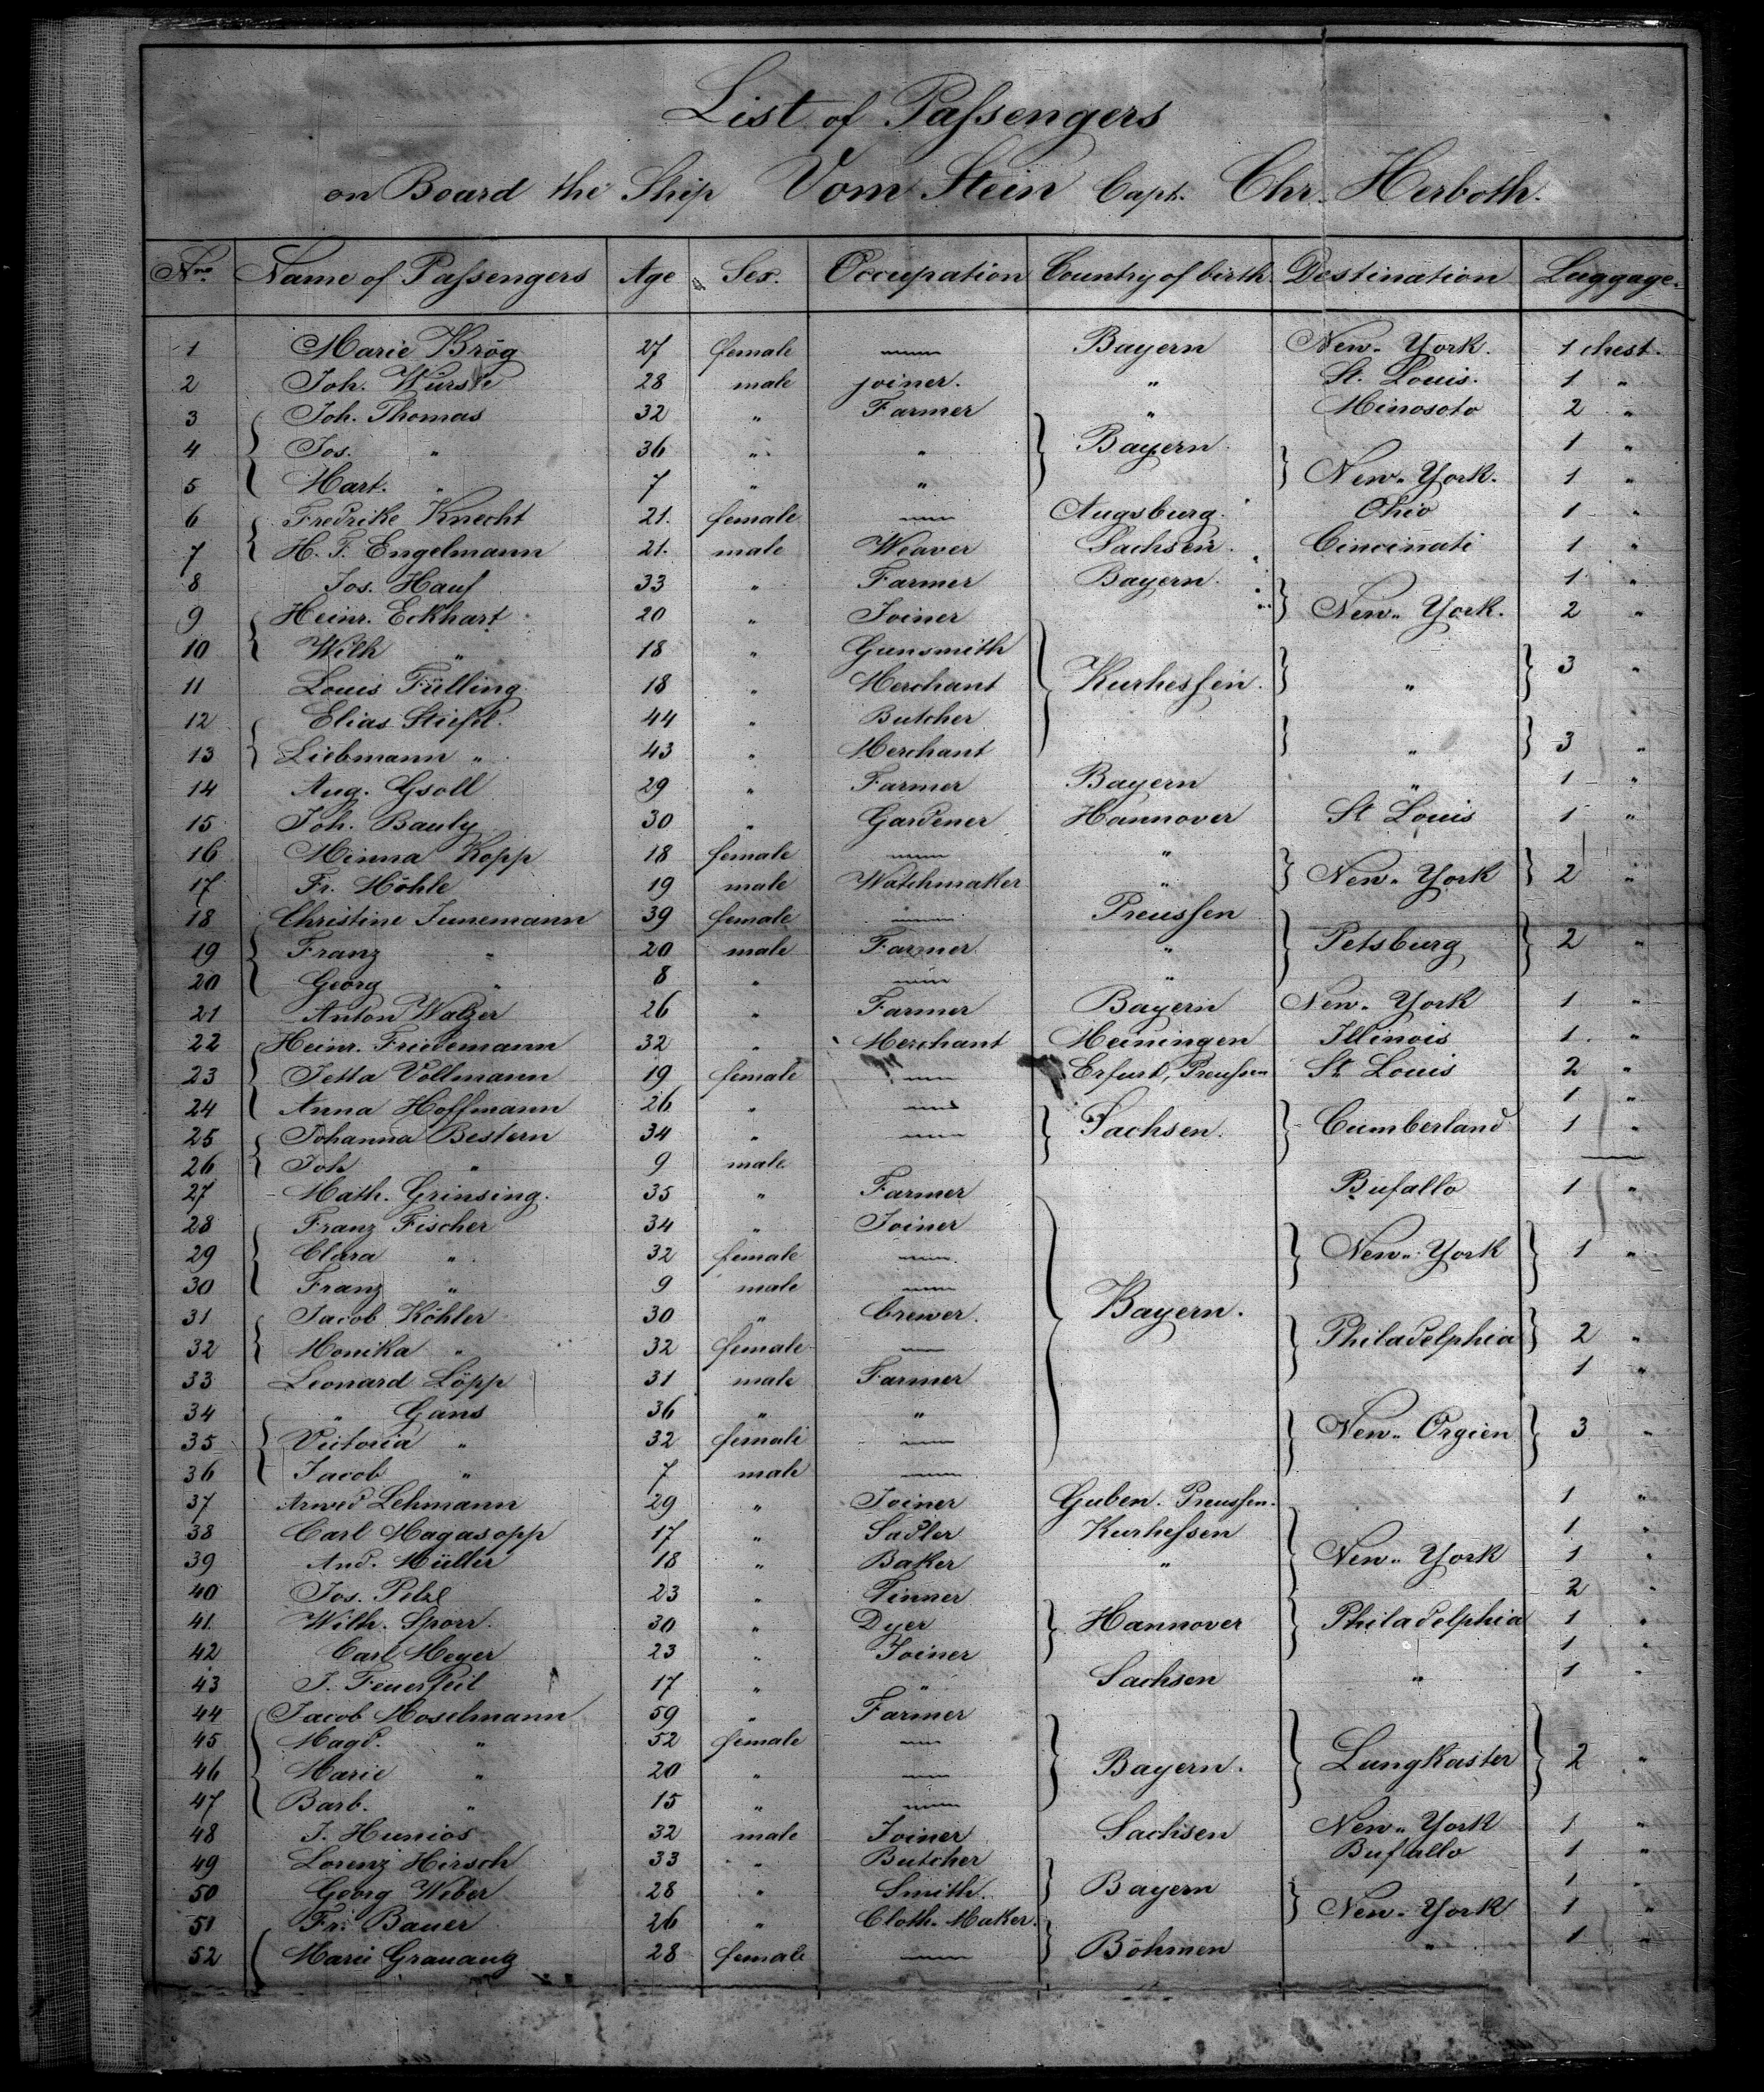 List of Passengers
on Board the Ship Vom Stein Capt. Chr. Herboth.
Nro. Name of Passengers Age Sex. Occupation Country of birth. Destination Luggage.
1 Marie Krög 27 female — Bayern New-York. 1 chest.
2 Joh. Wurste 28 male joiner. " St. Louis. 1 "
3 Joh. Thomas 32 " Farmer " Minosoto 2 "
4 Jos. " 36 " " Bayern 1 "
5 Mart. " 7 " " New-York. 1 "
6 Fredrike Knecht 21. female — Augsburg. Ohio 1 "
7 H. F. Engelmann 21. male Weaver Sachsen. Cincinati 1 "
8 Jos. Hauf 33 " Farmer Bayern. 1 "
9 Heinr. Eckhart 20 " Joiner New-York. 2 "
10 Wilh " 18 " Gunsmith
11 Louis Fülling 18 " Merchant Kurhessen. " 3 "
12 Elias Stiefel. 44 " Butcher
13 Liebmann " 43 " Merchant " 3 "
14 Aug. Gsoll 29 " Farmer Bayern " 1 "
15 Joh. Bauly 30 " Gardener Hannover St Louis 1 "
16 Minna Kopp 18 female — "
17 Fr. Höhle 19 male Watchmaker " New-York 2 "
18 Christine Junemann 39 female — Preussen
19 Franz " 20 male Farmer " Petsburg 2 "
20 Georg " 8 " — "
21 Anton Walzer 26 " Farmer Bayern New-York 1 "
22 Heinr. Friedemann 32 " Merchant Meiningen Illinois 1 "
23 Jetta Vollmann 19 female — Erfurt, Preussen St. Louis 2 "
24 Anna Hoffmann 26 " — 1 "
25 Johanna Bestern 34 " — Sachsen. Cumberland 1 "
26 Joh " 9 male —
27 Math. Grinsing. 35 " Farmer Bufallo 1 "
28 Franz Fischer 34 " Joiner
29 Clara " 32 female — New-York 1 "
30 Franz " 9 male —
31 Jacob Köhler 30 " brewer. Bayern.
32 Monika " 32 female — Philadelphia 2 "
33 Leonard Löpp 31 male Farmer 1 "
34 " Gans 36 " "
35 Victoria " 32 female — New-Orgien 3 "
36 Jacob " 7 male —
37 Arwed Lehmann 29 " Joiner Guben. Preussen. 1 "
38 Carl Magasopp 17 " Sadler Kurhessen 1 "
39 And. Müller 18 " Baker " New-York 1 "
40 Jos. Pelzl 23 " Tinner 2 "
41. Wilh. Sporr. 30 " Dyer Hannover Philadelphia 1 "
42 Carl Meyer 23 " Joiner 1 "
43 J. Feuerpeil 17 " " Sachsen " 1 "
44 Jacob Moselmann 59 " Farmer
45 Magd. " 52 female —
46 Marie " 20 " — Bayern. Lungkaster 2 "
47 Barb. " 15 " —
48 J. Hunios 32 male Joiner Sachsen New-York 1 "
49 Lorenz Hirsch 33 " Butcher Buffallo 1 "
50 Georg Weber 28 " Smith. Bayern 1 "
51 Fr. Bauer 26 " Cloth-Maker. New-York 1 "
52 Marie Grauaug 28 female — Böhmen " 1 "